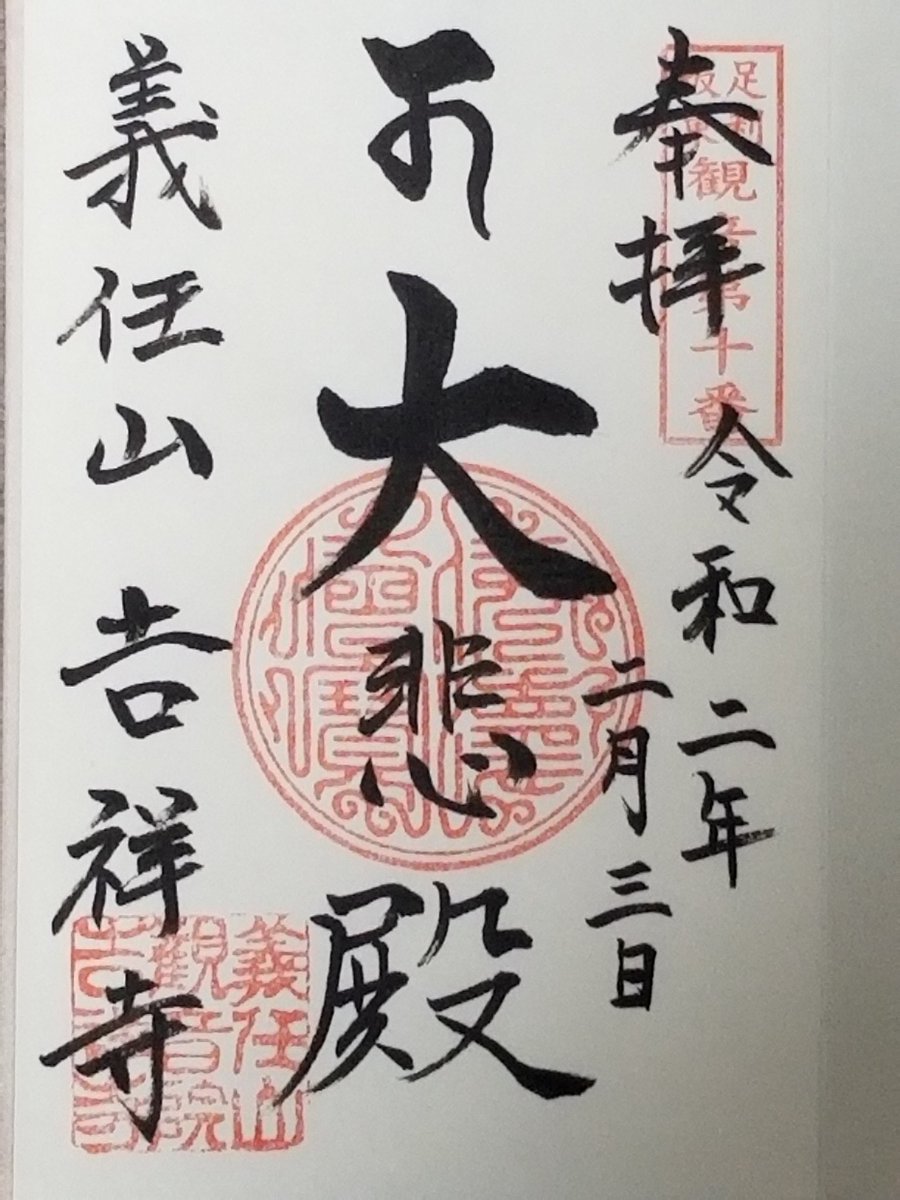 奉拝
足利
坂東
観音第十番
令和二年
二月三日
大悲殿
義任山
観音院
吉祥寺
義任山 吉祥寺